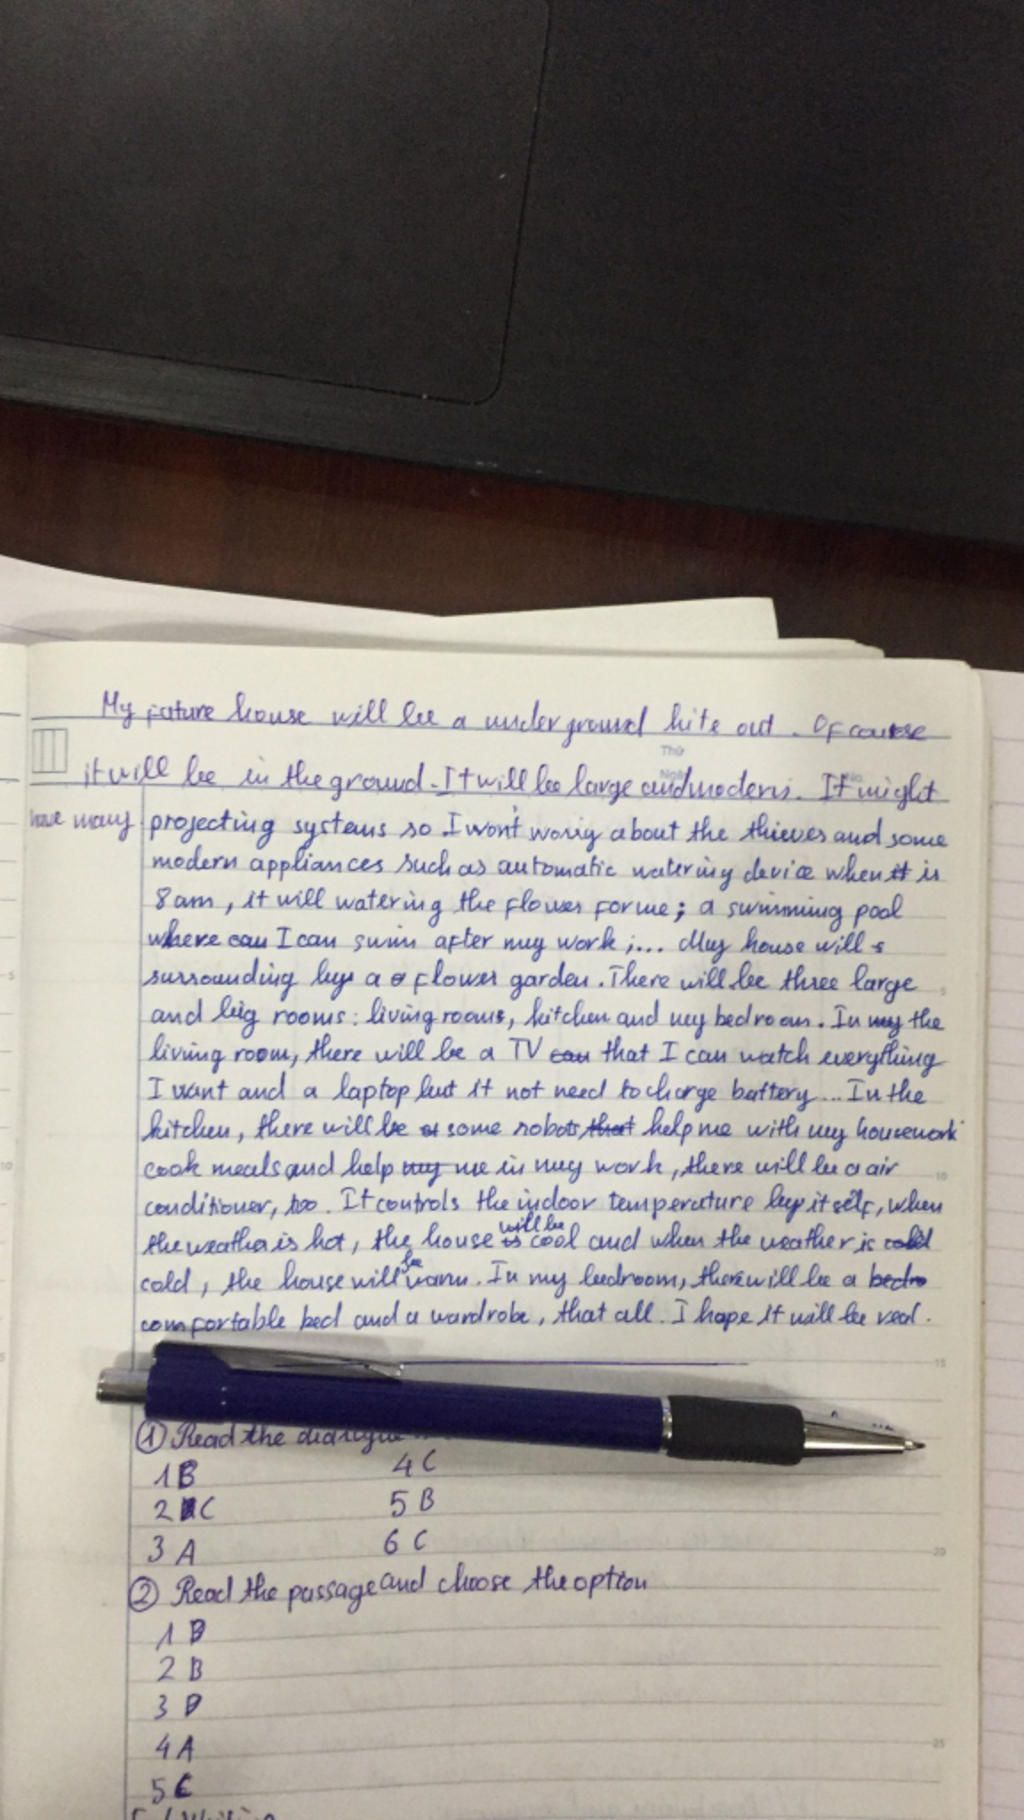 My future house will be a underground hite out. Of course
Thứ
Ngày
No.
it will be in the ground. It will be large and modern. It might
have many projecting systems so I won't worry about the thieves and some
modern appliances such as automatic watering device when it is
8 am, it will watering the flower for me; a swimming pool
where I can swim after my work;... My house will
surrounding by a flower garden. There will be three large
and big rooms: living rooms, kitchen and my bedroom. In the
living room, there will be a TV that I can watch everything
I want and a laptop but it not need to charge battery... In the
kitchen, there will be some robots help me with my housework
cook meals and help me in my work, there will be a air
conditioner, too. It controls the indoor temperature by it self, when
the weather is hot, the house will be cool and when the weather is
cold, the house will be warm. In my bedroom, there will be a
comfortable bed and a wardrobe, that all. I hope it will be real.
① Read the dialogue
1 B 4 C
2 C 5 B
3 A 6 C
② Read the passage and choose the option
1 B
2 B
3 D
4 A
5 C